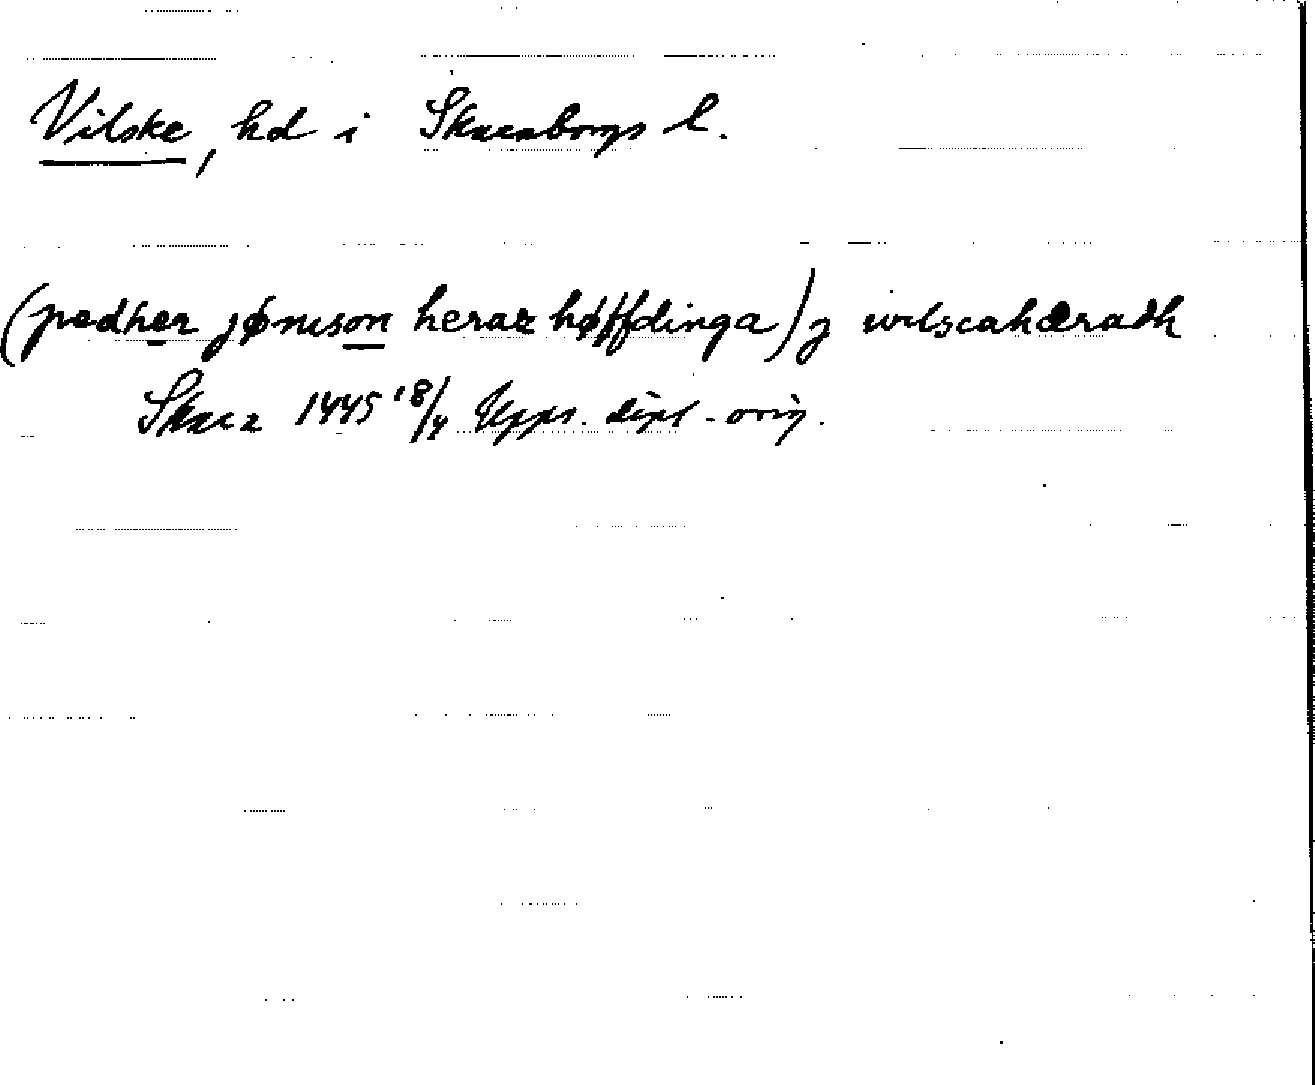 Vilske, hd i Skaraborgs l.
(pedher jønison heraz høffdinga) j wilscahæradh
Skara 1445 18/4 Upps. dipl. orig.